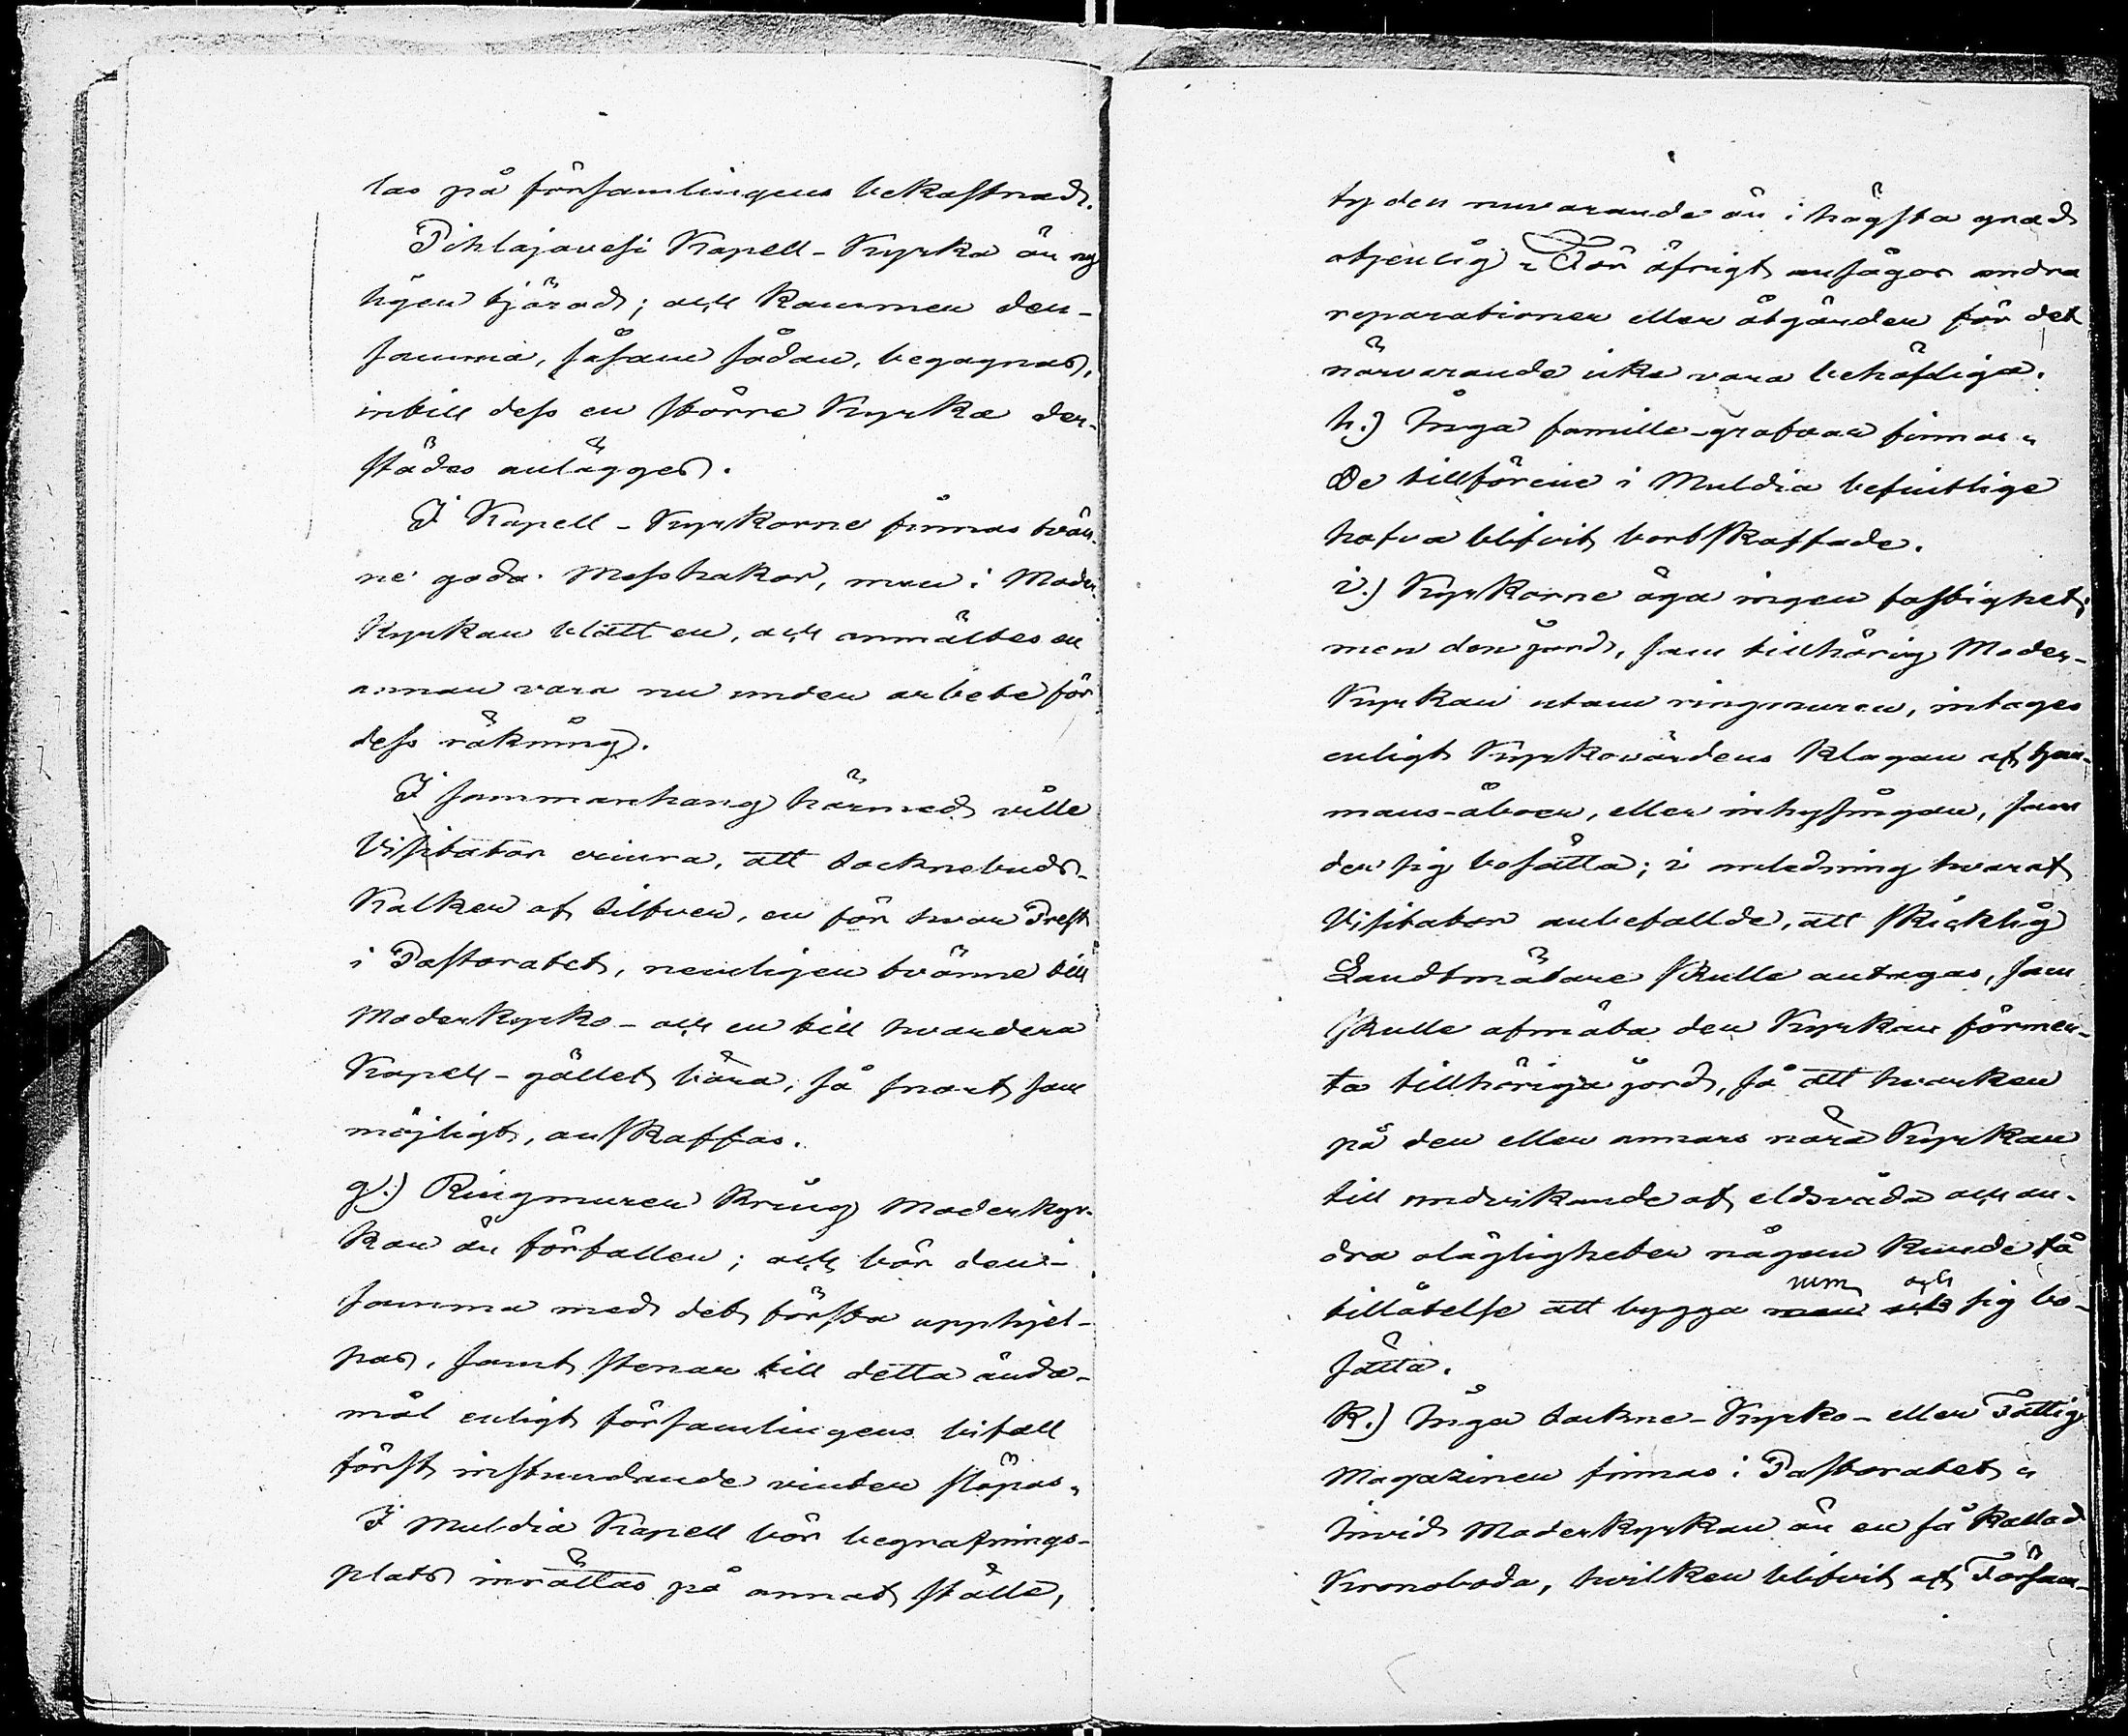 las på församlingens bekostnad.
Pihlajavesi Kapell-Kyrka är ny
ligen tjärad; och kommer den-
samma, såsom sådan, begagnas,
intill dess en större Kyrka der-
städes anlägges.
I Kapell-Kyrkorne finnas tvän-
ne goda Messhakar, men i Moder
Kyrkan blott en, och anmältes en
annan vara nu under arbete för
dess räkning.
I sammanhang härmed ville
Visitator erinra, att socknebuds-
Kalkar af silfver, en för hvar Prest
i Pastoratet, nemligen tvänne till
Moderkyrko- och en till hvardera
Kapell-gället böra, så snart som
möjligt, anskaffas.
g.) Ringmuren kring Moderkyr-
kan är förfallen; och bör den-
samma med det första upphjel-
pas, samt stenar till detta ända-
mål enligt församlingens bifall
först instundande vinter släpas.
I Muldia Kapell bör begrafnings-
plats inrättas på annat ställe,
ty den nuvarande är i högsta grad
otjenlig. För öfrigt ansågos andra
reparationer eller åtgärder för det
närvarande icke vara behöfliga.
h.) Inga famille-grafvar finnas.
De tillförene i Muldia befintlige
hafva blifvit bortskaffade.
i.) Kyrkorne äga ingen fastighet;
men den jord, som tillhörig Moder-
Kyrkan utom ringmuren, intages
enligt Kyrkovärdens klagan af han-
mans-åboer, eller inhysingar, som
der sig bosätta; i anledning hvaraf
Visitator anbefallde, att skicklig
Landtmätare skulle antagas, som
skulle afmäta den Kyrkan förmen-
ta tillhöriga jord, så att hvarken
på den eller annars nära Kyrkan
till undvikande af eldsvåda och an-
dra olägligheter någon kunde få
tillåtelse att bygga rum och sig bo-
sätta.
k.) Inga sockne-Kyrko- eller Fattig
Magaziner finnas i Pastoratet.
Invid Moderkyrkan är en så kallad
Kronoboda, hvilken blifvit af Försam-